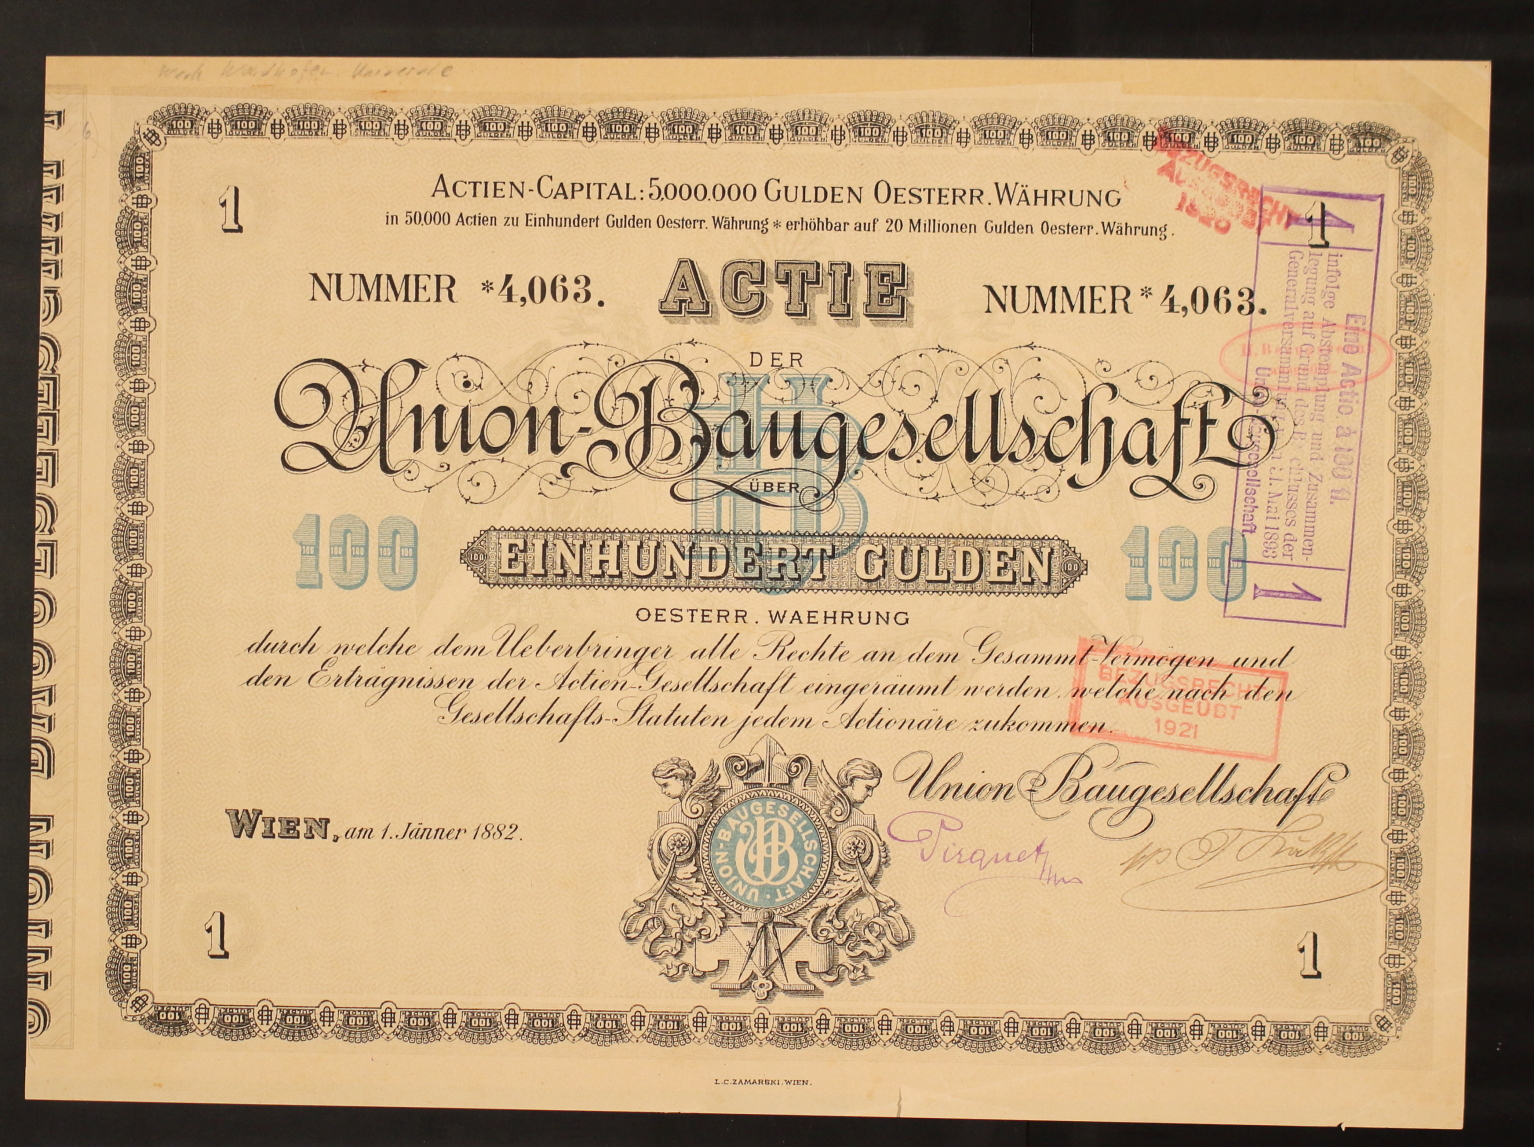 ACTIEN-CAPITAL: 5,000.000 GULDEN OESTERR. WÄHRUNG
in 50,000 Actien zu Einhundert Gulden Oesterr. Währung * erhöhbar auf 20 Millionen Gulden Oesterr. Währung.
1
1
NUMMER *4,063.
ACTIE
NUMMER *4,063.
DER
Union-Baugesellschaft
ÜBER
100
EINHUNDERT GULDEN
100
OESTERR. WAEHRUNG
durch welche dem Ueberbringer alle Rechte an dem Gesammt-Vermögen und
den Erträgnissen der Actien-Gesellschaft eingeräumt werden, welche nach den
Gesellschafts-Statuten jedem Actionäre zukommen.
Union-Baugesellschaft
WIEN, am 1. Jänner 1882.
UNION-BAUGESELLSCHAFT
Pirquet
1
1
L.C. ZAMARSKI. WIEN.
BEZUGSRECHT
AUSGEÜBT
1920
BEZUGSRECHT
AUSGEÜBT
1921
1
Eine Actie à 100 fl.
infolge Abstemplung und Zusammen-
legung auf Grund des Beschlusses der
Generalversammlung 31. Mai 1889
Union-Baugesellschaft
1
UNION BAUGESELLSCHAFT